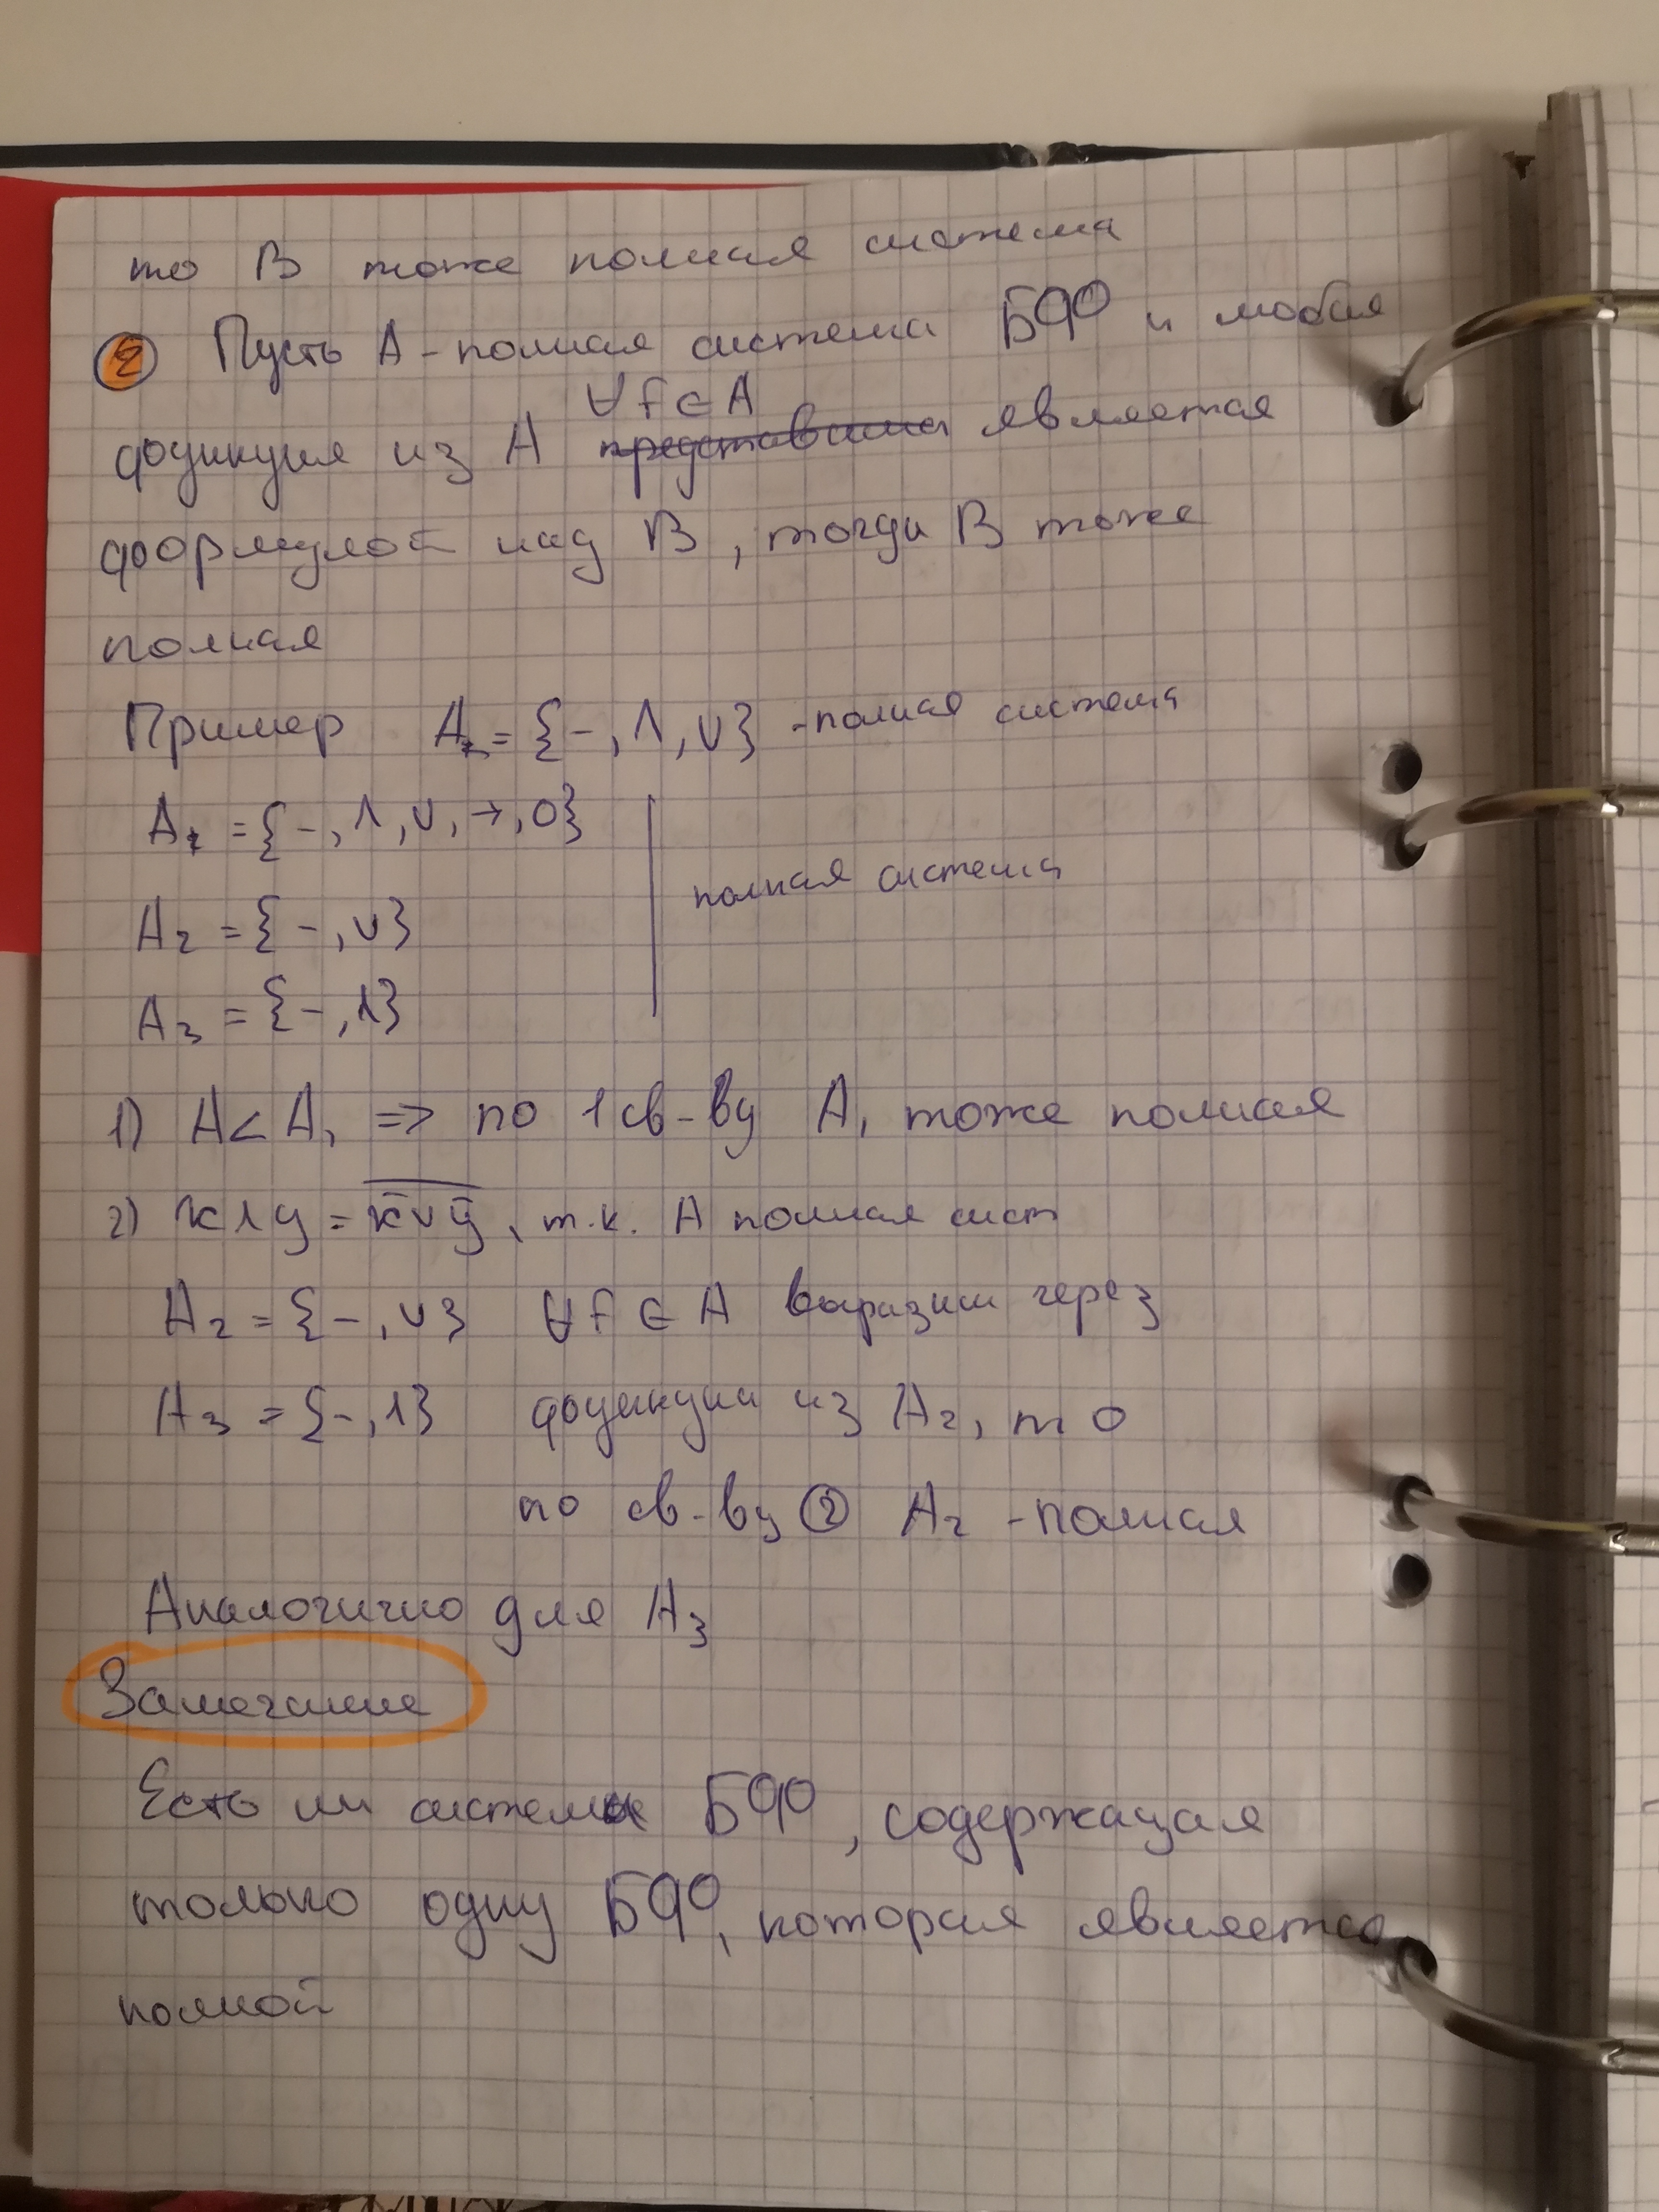 то В тоже полная система
② Пусть А - полная система БФ и любая
∀f∈A
функция из А представима является
формулой над В, тогда В тоже
полная
Пример A = {-, ∧, ∨} - полная система
A₁ = {-, ∧, ∨, →, 0}
A₂ = {-, ∨}
полная система
A₃ = {-, ∧}
1) A < A₁ => по 1 св-ву A₁ тоже полная
2) x∧y = \overline{x̄∨ȳ}, т.к. А полная сист
A₂ = {-, ∨} ∀f∈A выразим через
A₃ = {-, ∧} функции из A₂, то
по св-ву ② A₂ - полная
Аналогично для A₃
Замечание
Есть ли система БФ, содержащая
только одну БФ, которая является
полной